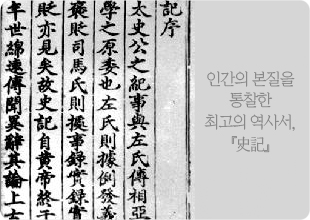 記序
太史公之紀事與左氏傳相亞
學之原委也左氏則據例發義
褒貶司馬氏則據事錄實錄實
貶亦見矣故史記自黃帝終于
年世綿連傳聞異辭其論上古
인간의 본질을
통찰한
최고의 역사서,
『史記』